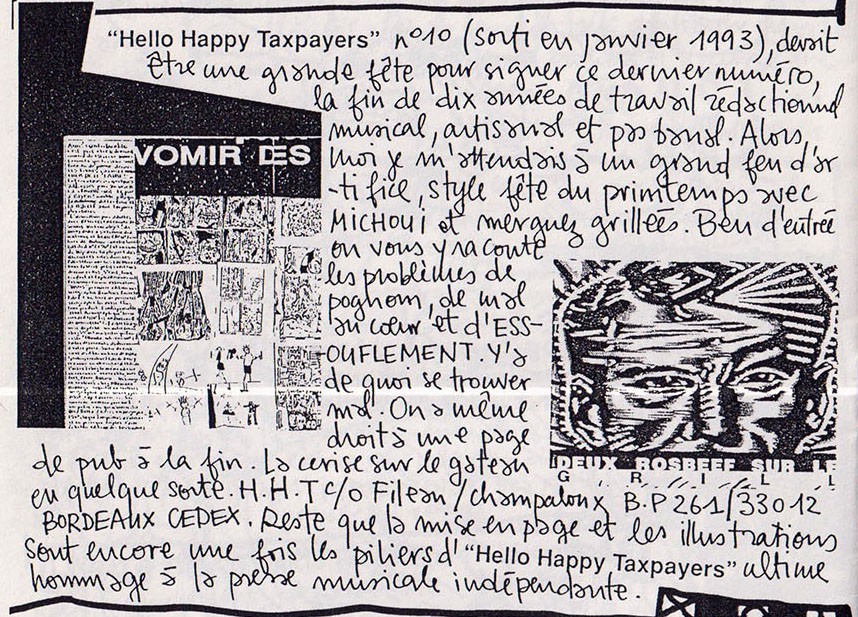 "Hello Happy Taxpayers" n°10 (sorti en janvier 1993), devait
être une grande fête pour signer ce dernier numéro,
la fin de dix années de travail rédactionnel
musical, artisanal et pas banal. Alors,
moi je m'attendais à un grand feu d'ar
-tifice, style fête du printemps avec
MICHOUI et merguez grillées. Ben d'entrée
on vous y raconte
les problèmes de
pognom, de mal
au coeur et d'ESS-
OUFLEMENT. Y'a
de quoi se trouver
mal. On a même
droit à une page
de pub à la fin. La cerise sur le gateau
en quelque sorte. H.H.T c/o Filean / champaloux B.P 261/33012
BORDEAUX CEDEX. Reste que la mise en page et les illustrations
sont encore une fois les piliers d'"Hello Happy Taxpayers" ultime
hommage à la presse musicale indépendante.
VOMIR DES
DEUX ROSBEEF SUR LE
G R I L L